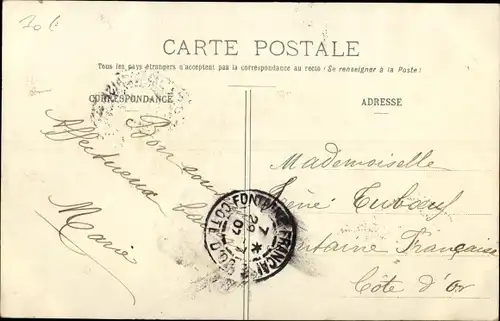 CARTE POSTALE
Tous les pays étrangers n'acceptent pas la correspondance au recto (Se renseigner à la Poste)
CORRESPONDANCE
ADRESSE
Bon
Affectueux
Marie
Mademoiselle
Fontaine Française
Côte d'Or
FONTAINE-FRANÇAISE
CÔTE-D'OR
7
29 - 7
07